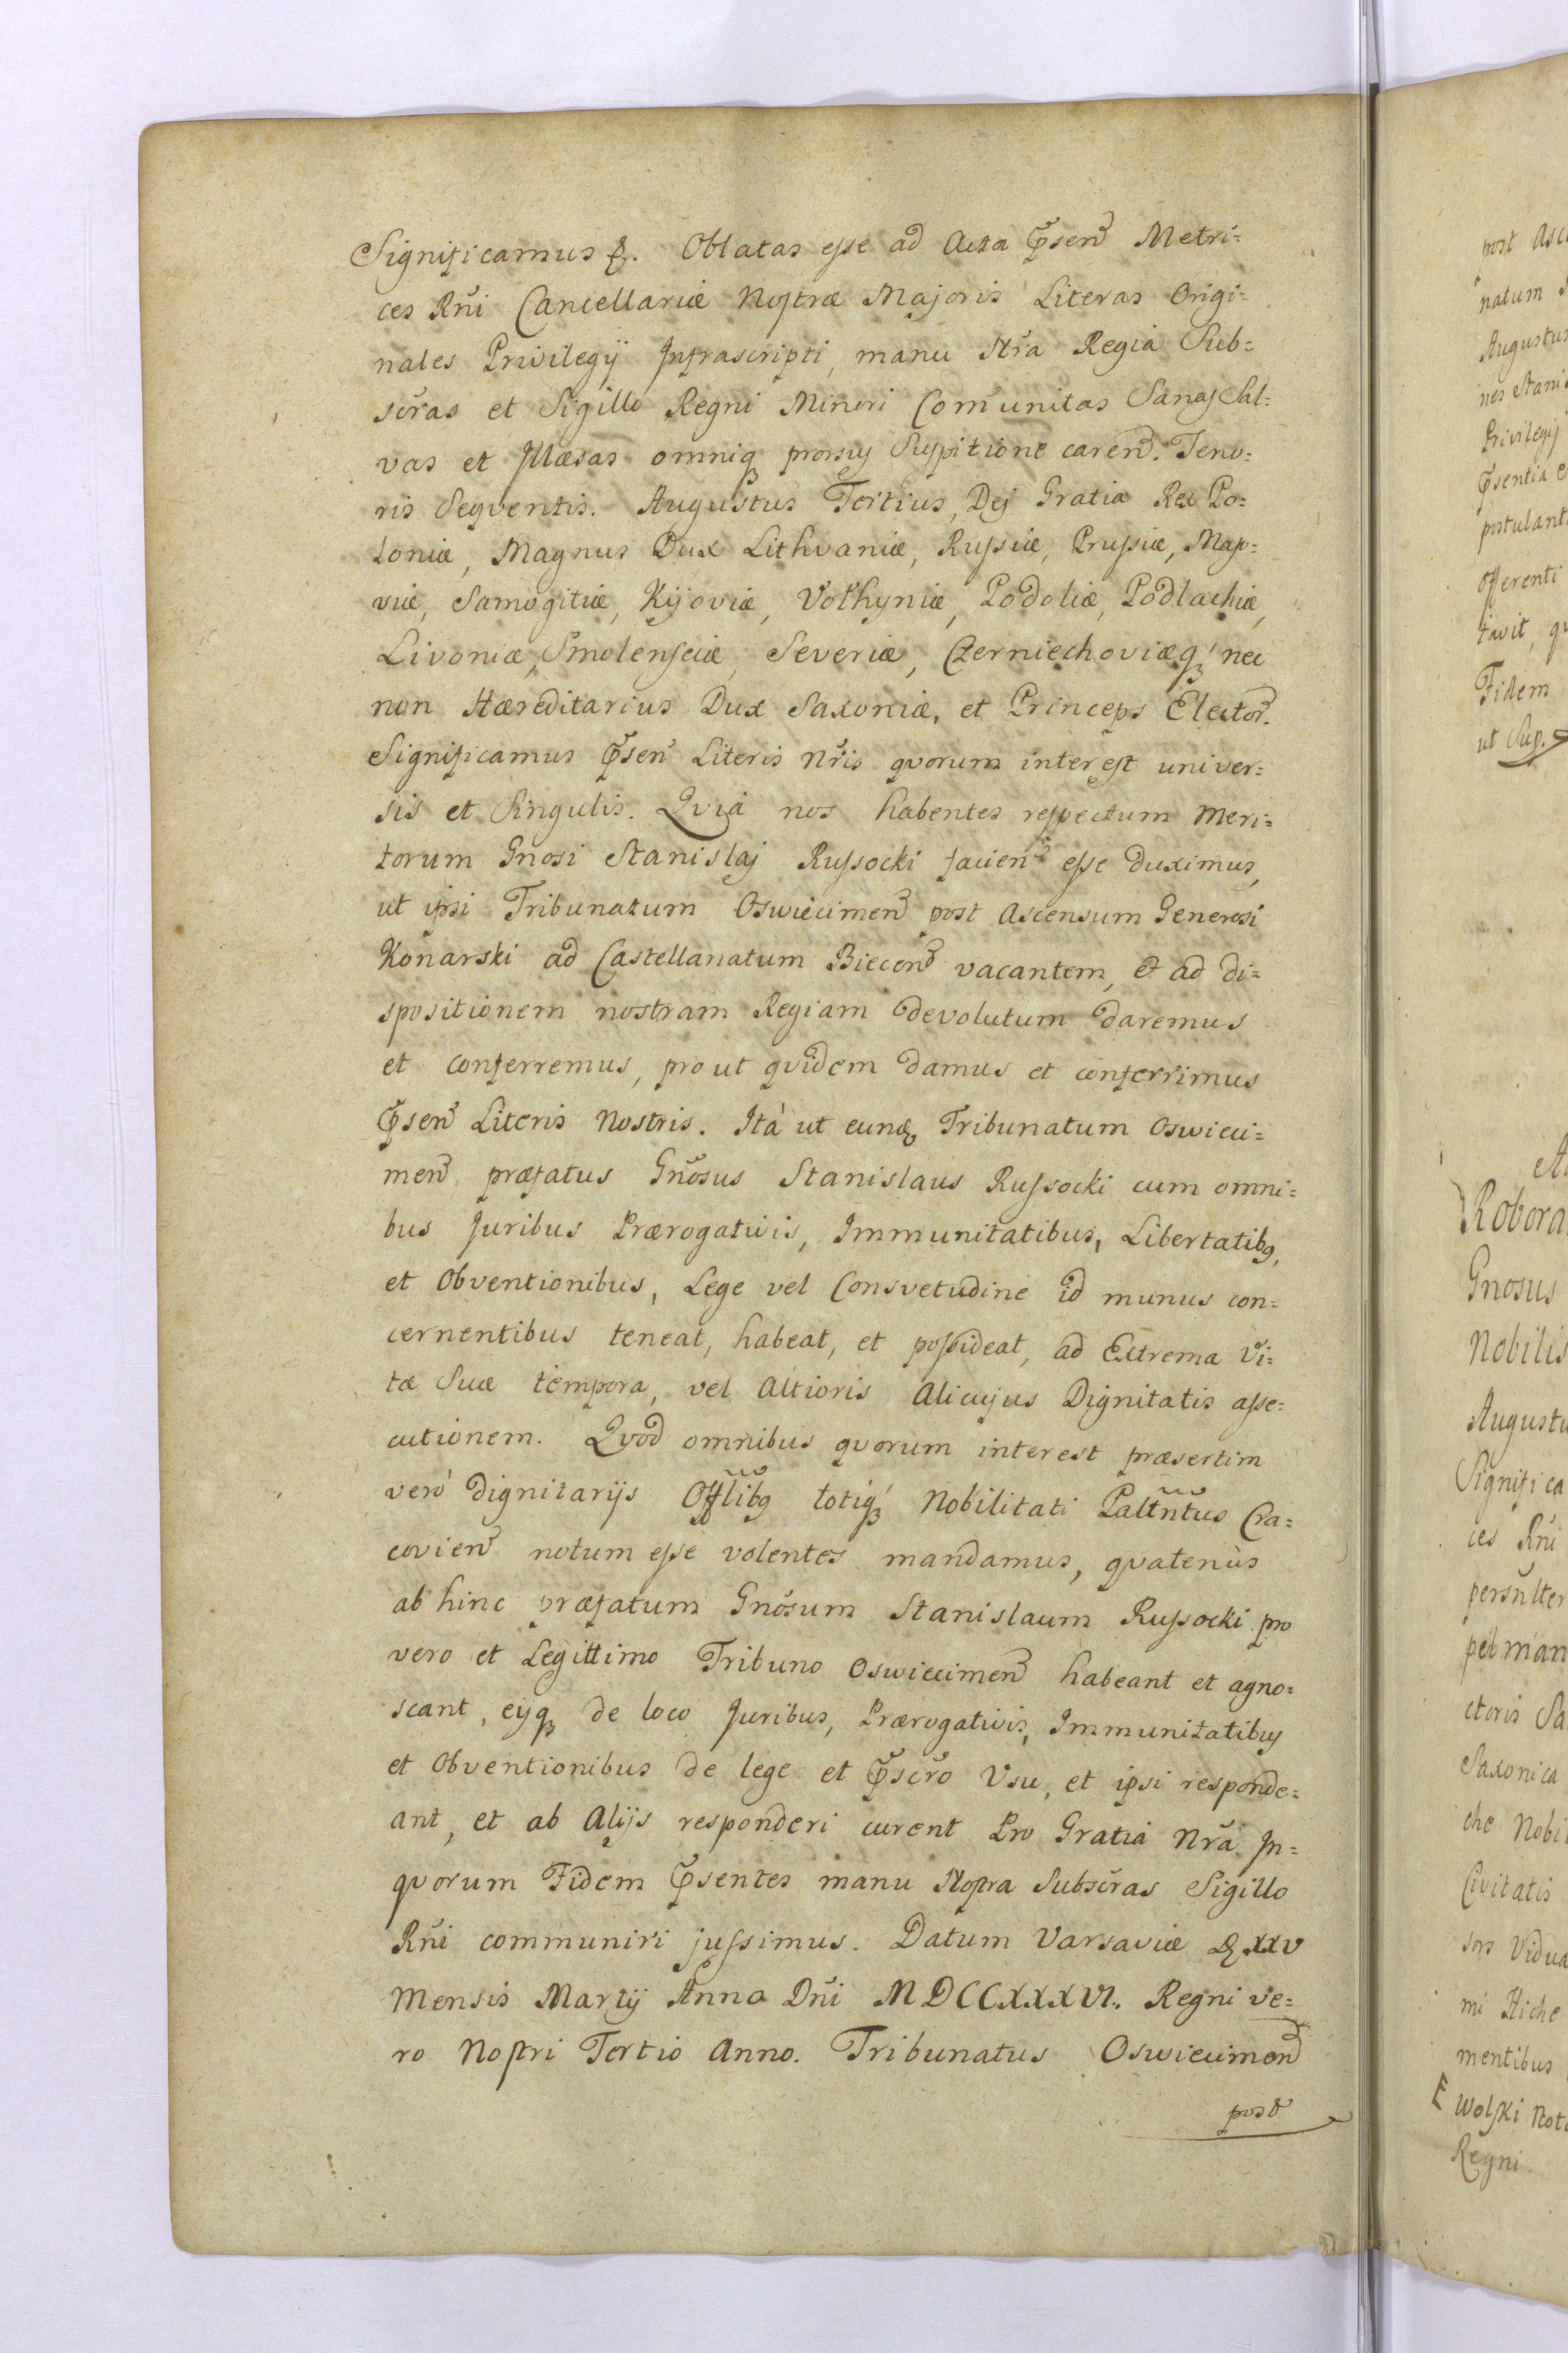 Significamus &. Oblatas eſse ad Acta P̃sen̄ Metri=
ces Rñi Cancellariæ Noſtræ Majoris Literas Origi=
nales Privilegÿ Infrascripti, manu Nr̃a Regia Sub=
scr̃as et Sigillo Regni Minori Com̃unitas Sanas Sal=
vas et Illæsas omniq; prorsus Suspitione caren̄. Teno=
ris Seqventis. Augustus Tertius, Dej Gratia Rex Po=
loniæ, Magnus Dux Lithvaniæ, Ruſsiæ, Pruſsiæ, Maſo=
viæ, Samogitiæ, Kijoviæ, Volhyniæ, Podoliæ, Podlachiæ,
Livoniæ, Smolenſciæ, Severiæ, Czerniechoviæq; nec
non Hæreditarius Dux Saxoniæ, et Princeps Elector.
Significamus P̃sen̄ Literis Nr̃is qvorum intereſt univer=
sis et Singulis. Qvia nos habentes reſpectum Meri=
torum Gnosi Stanislaj Ruſsocki facien̄ eſse duximus,
ut ipsi Tribunatum Oswiecimen̄ post Ascensum Generosi
Konarski ad Castellanatum Biecen̄ vacantem, et ad di=
spositionem nostram Regiam devolutum daremus
et conferremus, pro ut qvidem damus et conferrimus
P̃sen̄ Literis Nostris. Ità ut eund; Tribunatum Oswieci=
men̄ præfatus Gnõsus Stanislaus Ruſsocki cum omni=
bus Juribus Prærogativis, Immunitatibus, Libertatibq,
et Obventionibus, Lege vel Consvetudine id munus con=
cernentibus teneat, habeat, et poſsideat, ad Extrema Vi=
tæ Suæ tempora, vel Altioris Alicujus Dignitatis aſse=
cutionem. Qvod omnibus qvorum interest præsertim
verò dignitarijs Offl̃ibq totiq; Nobilitati Paltñtus Cra=
covien̄ notum eſse volentes mandamus, qvatenùs
ab hinc præfatum Gnõsum Stanislaum Ruſsocki pro
vero et Legittimo Tribuno Oswiecimen̄ habeant et agno=
scant, eijq; de loco Juribus, Prærogativis, Immunitatibus
et Obventionibus de lege et P̃scr̃o Vsu, et ipsi responde=
ant, et ab Alijs responderi curent Pro Gratiâ Nr̃a. In=
qvorum Fidem P̃sentes manu Noſtra Subscr̃as Sigillo
Rñi communiri juſsimus. Datum Varsaviæ D; XXV
Mensis Martij Anno Dñi MDCCXXXVI. Regni ve=
ro Noſtri Tertio Anno. Tribunatus Oswiecimen̄
post
post Asc
natum
Augustus
nes Stani
Privilegij
P̃sentia
postulant
Offerenti
tavit, qv
Fidem
ut Sup.
Robora
Gnosus
Nobilis
Augustu
Significa
ces Rñi
pet man
ctoris Sa
Saxonica
che Nobi
Civitatis
sors Vidua
mi Hiche
mentibus
Wolſki Not
Regni.